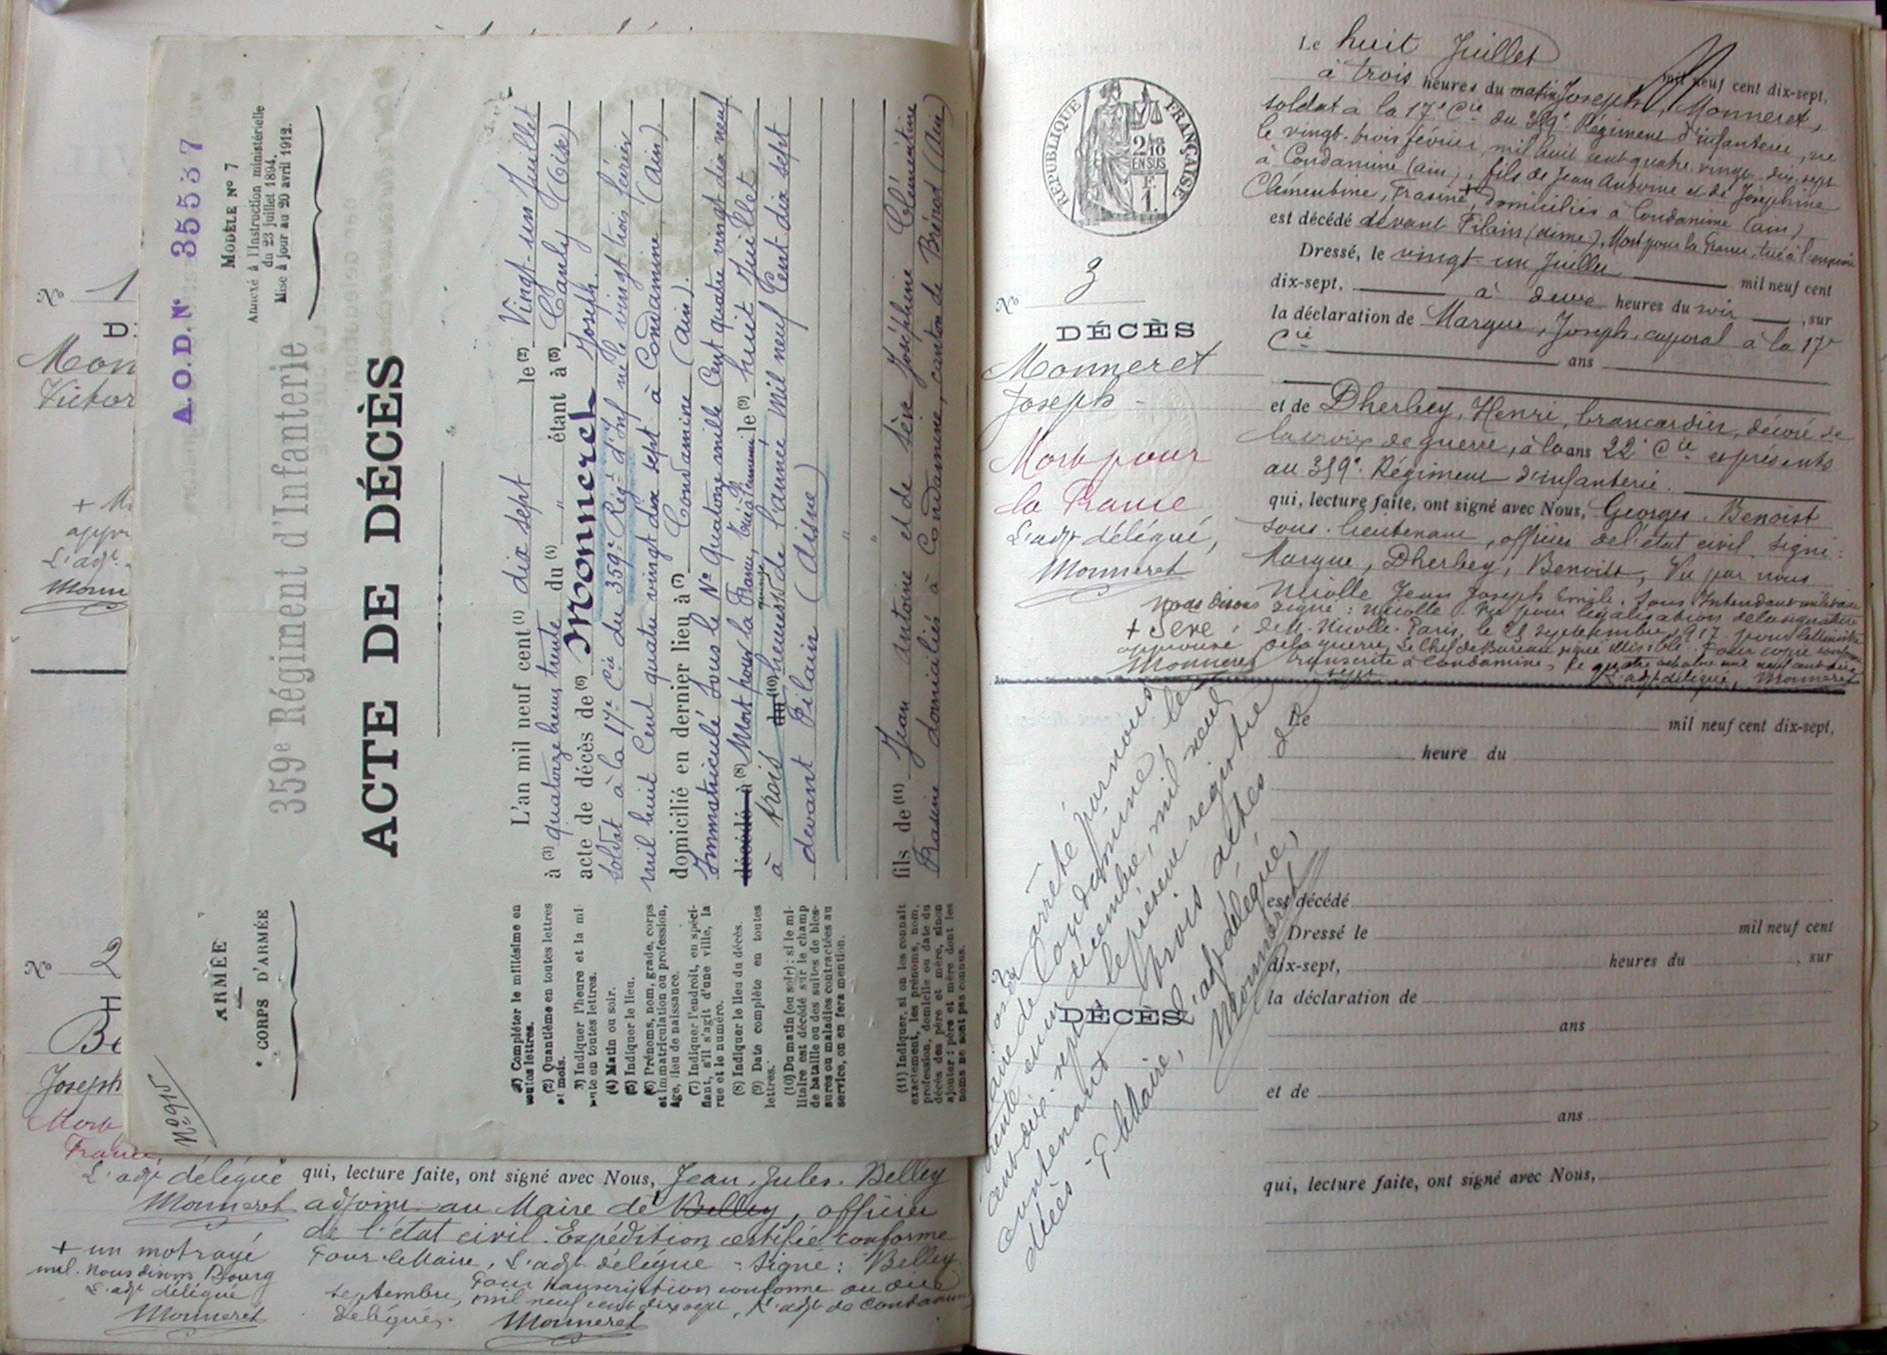 Nº 1
D
Mon
Victor
appr
L'adjt
Monn
Nº 2
H
Be
Joseph
Mort
France
L'adjt délégué
Monneret
+ un mot rayé
nul. Nous disons Bourg
L'adjt délégué
Monneret
Nº 915
ARMÉE
CORPS D'ARMÉE
A.O.D. Nº 35537
MODÈLE Nº 7
Annexé à l'Instruction ministérielle
du 23 juillet 1894.
Mise à jour au 20 avril 1912.
359e Régiment d'Infanterie
ACTE DE DÉCÈS
L'an mil neuf cent (1) dix sept le (2) Vingt-un Juillet
à (3) quatorze heures trente du (4) " étant à (5) Cauly (Oise)
acte de décès de (6) Monneret Joseph
soldat à la 17e Cie du 359e Rég. d'Inf né le vingt trois février
mil huit Cent quatre vingt dix sept à Condamine (Ain)
domicilié en dernier lieu à (7) Condamine (Ain).
Immatriculé sous le Nº Quatorze mille Cent quatre vingt dix neuf
décédé à (8) Mort pour la France, Tué à l'ennemi le (9) huit Juillet
à trois heures du (10) de l'année mil neuf Cent dix sept
devant Filain (Aisne)
"
fils de (11) Jean Antoine et de Sève Joséphine Clémentine
Frasine domiciliés à Condamine, canton de Brénod (Ain)
(1) Compléter le millésime en
toutes lettres.
(2) Quantième en toutes lettres
et mois.
(3) Indiquer l'heure et la mi-
nute en toutes lettres.
(4) Matin ou soir.
(5) Indiquer le lieu.
(6) Prénoms, nom, grade, corps
et immatriculation ou profession,
âge, lieu de naissance.
(7) Indiquer l'endroit, en spéci-
fiant, s'il s'agit d'une ville, la
rue et le numéro.
(8) Indiquer le lieu du décès.
(9) Date complète en toutes
lettres.
(10) Du matin (ou soir); si le mi-
litaire est décédé sur le champ
de bataille ou des suites de bles-
sures ou maladies contractées au
service, on en fera mention.
(11) Indiquer, si on les connaît
exactement, les prénoms, nom,
profession, domicile ou date du
décès des père et mère, sinon
ajouter : père et mère dont les
noms ne sont pas connus.
qui, lecture faite, ont signé avec Nous, Jean Jules Belley
adjoint au Maire de Belley, officier
de l'état civil. Expédition certifiée conforme
Pour le Maire, L'adjt délégué - Signé : Belley
Pour transcription conforme au deux
septembre, mil neuf cent dix sept, L'adjt de Condamine
délégué.
Monneret
RÉPUBLIQUE FRANÇAISE
2/10
EN SUS
1 F.
Nº 3
DÉCÈS
Monneret
Joseph
Mort pour
la France
L'adjt délégué,
Monneret
Nous disons
+ Sève,
approuvé
Monneret
Le huit Juillet mil neuf cent dix-sept,
à trois heures du matin Joseph Monneret,
soldat à la 17e Cie du 359e Régiment d'infanterie, né
le vingt-trois février, mil huit cent quatre vingt-dix-sept
à Condamine (ain), fils de Jean Antoine et de Joséphine
Clémentine, Frasine + domiciliés à Condamine (ain)
est décédé devant Filain (aisne), Mort pour la France, tué à l'ennemi
Dressé, le vingt-un Juillet mil neuf cent
dix-sept, à deux heures du soir, sur
la déclaration de Margue, Joseph, caporal à la 17e
Cie ans
et de Dherbey, Henri, brancardier, décoré de
la croix de guerre, à la ans 22e Cie et présents
au 359e Régiment d'infanterie.
qui, lecture faite, ont signé avec Nous, Georges Benoist
sous-lieutenant, officier de l'état civil. Signé :
Margue, Dherbey, Benoist, Vu par nous
Nicolle Jean Joseph Emile, Sous Intendant militaire
signé : Nicolle. Vu pour légalisation de la signature
de M. Nicolle. Paris, le 25 septembre 1917. pour le Ministre
de la guerre, Le Chef de Bureau signé illisible. Pour copie conforme
transcrite à Condamine, le quatre octobre mil neuf cent dix
sept L'adjt délégué, Monneret
Le mil neuf cent dix-sept,
heure du
est décédé
Dressé le mil neuf cent
dix-sept, heures du , sur
la déclaration de
ans
et de
ans
qui, lecture faite, ont signé avec Nous,
DÉCÈS
arrêté par nous
Maire de Condamine, le
trente et un décembre, mil neuf
cent dix-sept le présent registre
contenant trois actes de
décès - P. le Maire, L'adjt délégué,
Monneret